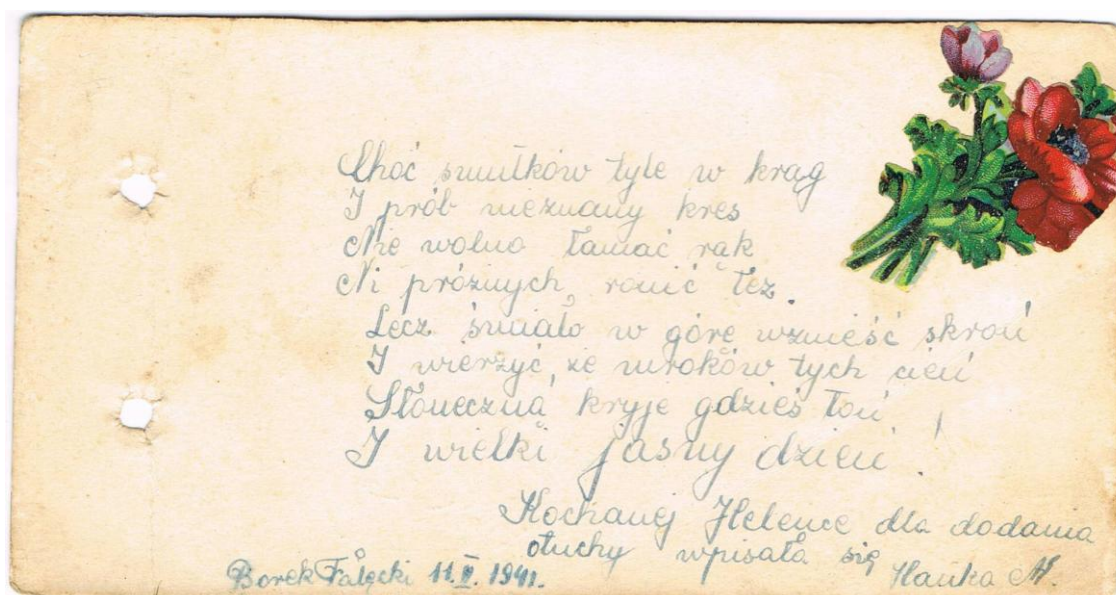 Choć smutków tyle w krąg
I prób nieznany kres
Nie wolno łamać rąk
Ni próżnych ronić łez.
Lecz śmiało w górę wznieść skroń
I wierzyć, że mroków tych cień
Słoneczną kryje gdzieś toń
I wielki jasny dzień!
Kochanej Helence dla dodania
otuchy wpisała się
Borek Fałęcki 11.V. 1941. Hanka M.